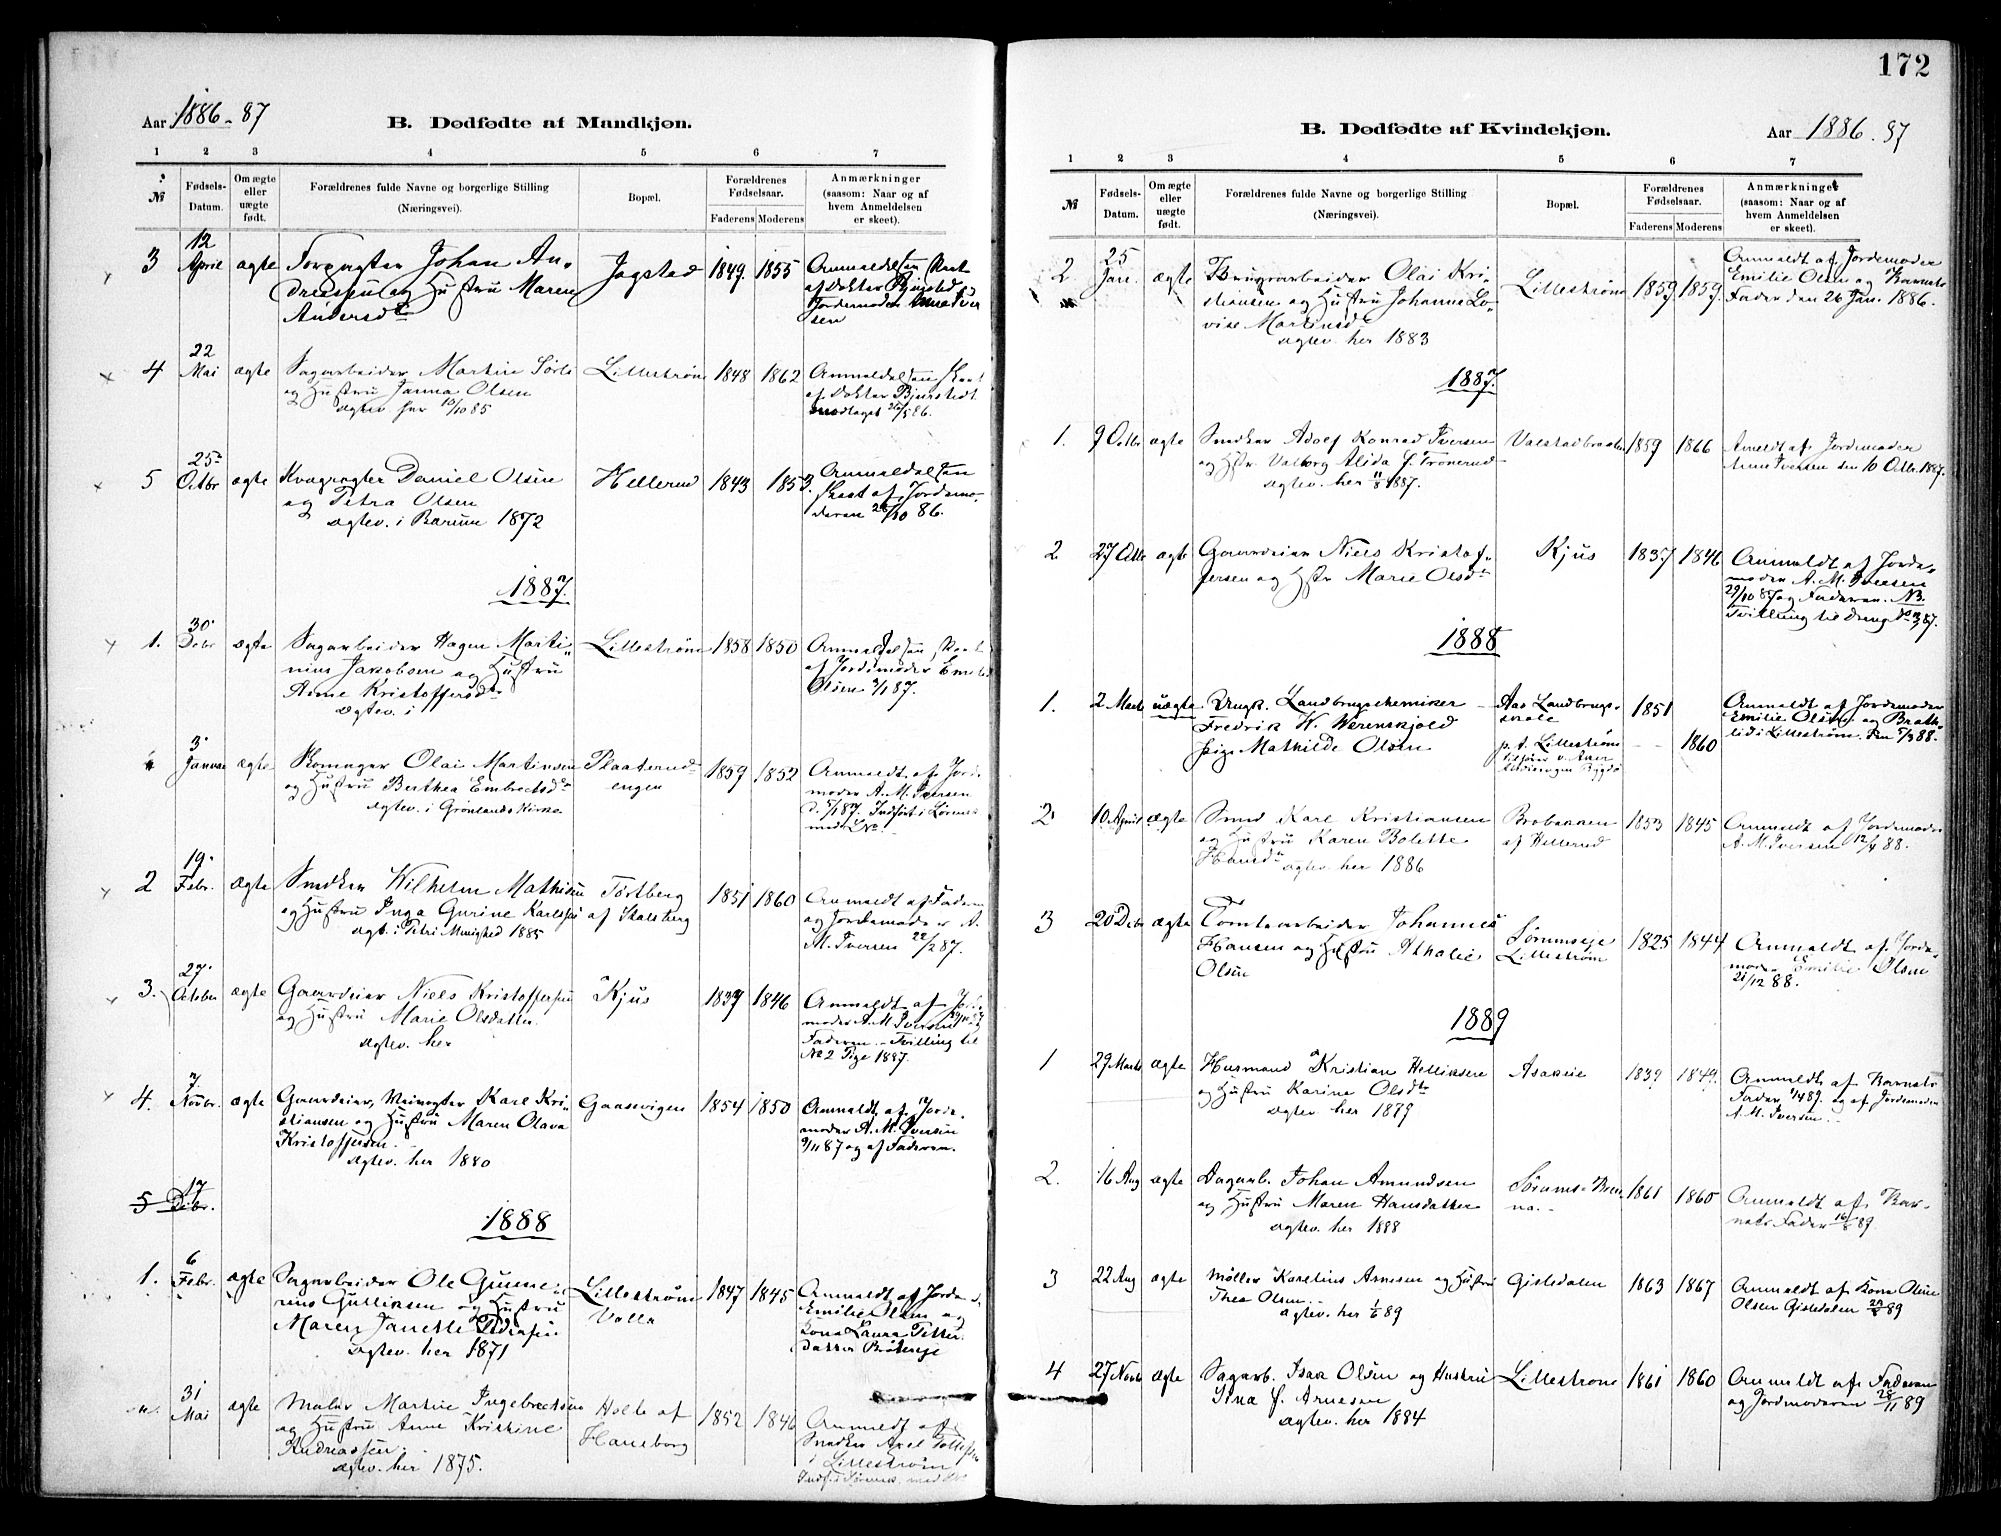 172
Aar 1886-87
B. Dødfødte af Mandkjøn.
1 2 3 4 5 6 7
№ Fødsels-Datum. Om ægte eller uægte født. Forældrenes fulde Navne og borgerlige Stilling (Næringsvei). Bopæl. Forældrenes Fødselsaar. Faderens Moderens Anmærkninger (saasom: Naar og af hvem Anmeldelsen er skeet).
3 12 April ægte Johan An-
dreesen og Hustru Maren
Andersdtr
Jogstad 1849. 1855
Anmeldelsen skeet
af Doktor
Jordemoder Iver
sen
4 22 Mai ægte Sagarbeider Martin Sørli
og Hustru Janna Olsen
ægtev. her 10/10 85
Lillestrøm 1848 1862
Anmeldelsen skeet
af Doktor Bjørnstedt
modtaget
5 25 Octbr ægte Daniel Olsen
og Petra Olsen
ægtev. i Bærum 1872
Hellerud 1843 1853.
Anmeldelsen
skeet af Jordemo-
deren 28/10 86.
1887.
1. 30 Debr ægte Sagarbeider Hagen Marti-
nius Jakobsen og Hustru
Anne Kristoffersdtr
ægtev. i
Lillestrøm 1858 1850
Anmeldelsen skeet
af Jordemoder Emilie
Olsen 3/1 87.
3 Januar ægte Olai Martinsen
og Hustru Berthea Embretsdtr
ægtev. i Grønlands Kirke
Plaaterud-
engen 1859 1852
Anmeldt af Jorde
moder A. M. Iversen
d. 5/1 87. Indført i
2 19 Febr. ægte Snedker Wilhelm Mathisen
og Hustru Inga Gurine Karlsen
ægt. i Petri Menighed 1885
Tørtberg
af Skalsberg 1851 1860
Anmeldt af Faderen
og Jordemoder A.
M. Iversen 22/2 87.
3. 27 October ægte Gaardeier Niels Kristoffersen
og Hustru Marie Olsdatter.
ægtev. her
Kjus 1837 1846
Anmeldt af Jorde
moder A. M. Iversen
Faderen. Tvilling til
№ 2 Pige 1887.
4. 7 Novbr. ægte Gaardeier, Karl Kri-
stiansen og Hustru Maren Olava
Kristoffersen.
ægtev. her 1880
Gaasevigen 1854 1850
Anmeldt af Jorde-
moder A. M. Iversen
9/11 87 og af Faderen.
5 17 Debr.
1888
1. 6 Febr. ægte Sagarbeider Ole Gunne-
rius Gulliksen og Hustru
Maren Janette
ægtev. her 1871
Lillestrøm
Volla 1847 1845
Anmeldt af Jordem.
Emilie Olsen og
Kona Laura Petter
datter
31 Mai ægte Maler Martin Ingebretsen
og Hustru Anne Kristine
Andreassen.
ægtev. her 1875.
Holte af
Haneborg 1852 1846
Anmeldt af
Snedker Axel
i Lillestrøm
B. Dødfødte af Kvindekjøn.
Aar 1886.87
1 2 3 4 5 6 7
№ Fødsels-Datum. Om ægte eller uægte født. Forældrenes fulde Navne og borgerlige Stilling (Næringsvei). Bopæl. Forældrenes Fødselsaar. Faderens Moderens Anmærkninger (saasom: Naar og af hvem Anmeldelsen er skeet).
2 25 Jan. ægte Brugsarbeider Olai Kri-
stiansen og Hustru Johanne Lo-
vise Martinsd.
ægtev. her 1883
Lillestrøm 1859 1859.
Anmeldt af Jordemoder
Emilie Olsen og Barnets
Fader den 26 Jan. 1886.
1887.
1. 9 Octbr ægte Snedker Adolf Konrad Iversen
og Hstr. Valborg Alida f. Tronerud
ægtev. her 11/8 1887.
Valstadbraaten 1859 1866
Anmeldt af Jordemoder
Anne Iversen den 10 Octbr. 1887.
2 27 Octbr ægte Gaardeier Niels Kristof-
fersen og Hstr Marie Olsdtr
Kjus 1837 1846
Anmeldt af Jorde-
moder A. M. Iversen
29/10 87 og Faderen. NB.
Tvilling til Dreng № 3 87.
1888
1. 2 Marts uægte Ungk. Landbrugschemiker
Fredrik W. Werenskjold
Pige Mathilde Olsen
Aas Landbrugs-
skole
p. t. Lillestrøm
1851
1860
Anmeldt af Jordemoder
Emilie Olsen og
i Lillestrøm. Den 5/3 88.
2 10 April ægte Smed Karl Kristiansen
og Hustru Karen Bolette
Hansdtr ægtev. her 1886
Brobakken
af Hellerud 1853 1845
Anmeldt af Jordemoder
A. M. Iversen 12/4 88.
3 20 Debr ægte Tomtearbeider Johannes
Hansen og Hustru Athalie
Olsen
Sørumseje
Lillestrøm 1825 1844
Anmeldt af Jorde-
moder Emilie Olsen
21/12 88.
1889
1 29 Marts ægte Husmand Kristian Helliksen
og Hustru Karine Olsdtr
ægtev her 1879
Asakeie 1839 1849.
Anmeldt af Barnets
Fader 1/4 89. og af Jordemoder
A. M. Iversen.
2. 16 Aug ægte Dagarb. Johan Amundsen
og Hustru Maren Hansdatter
ægtev. her 1888
1861 1860
Anmeldt af Bar-
nets Fader 16/8 89.
3 22 Aug ægte Møller Karelius Arnesen og Hustru
Thea Olsen.
ægtev. her 1/6 89
Gistedalen 1863 1867
Anmeldt af Kona Oline
Olsen Gistedalen
4 27 Novbr ægte Sagarb. Isak Olsen og Hustru
Stina f. Arnesen
ægtev. her 1884
Lillestrøm 1861 1860
Anmeldt af Faderen
og Jordmoderen 28/11 89